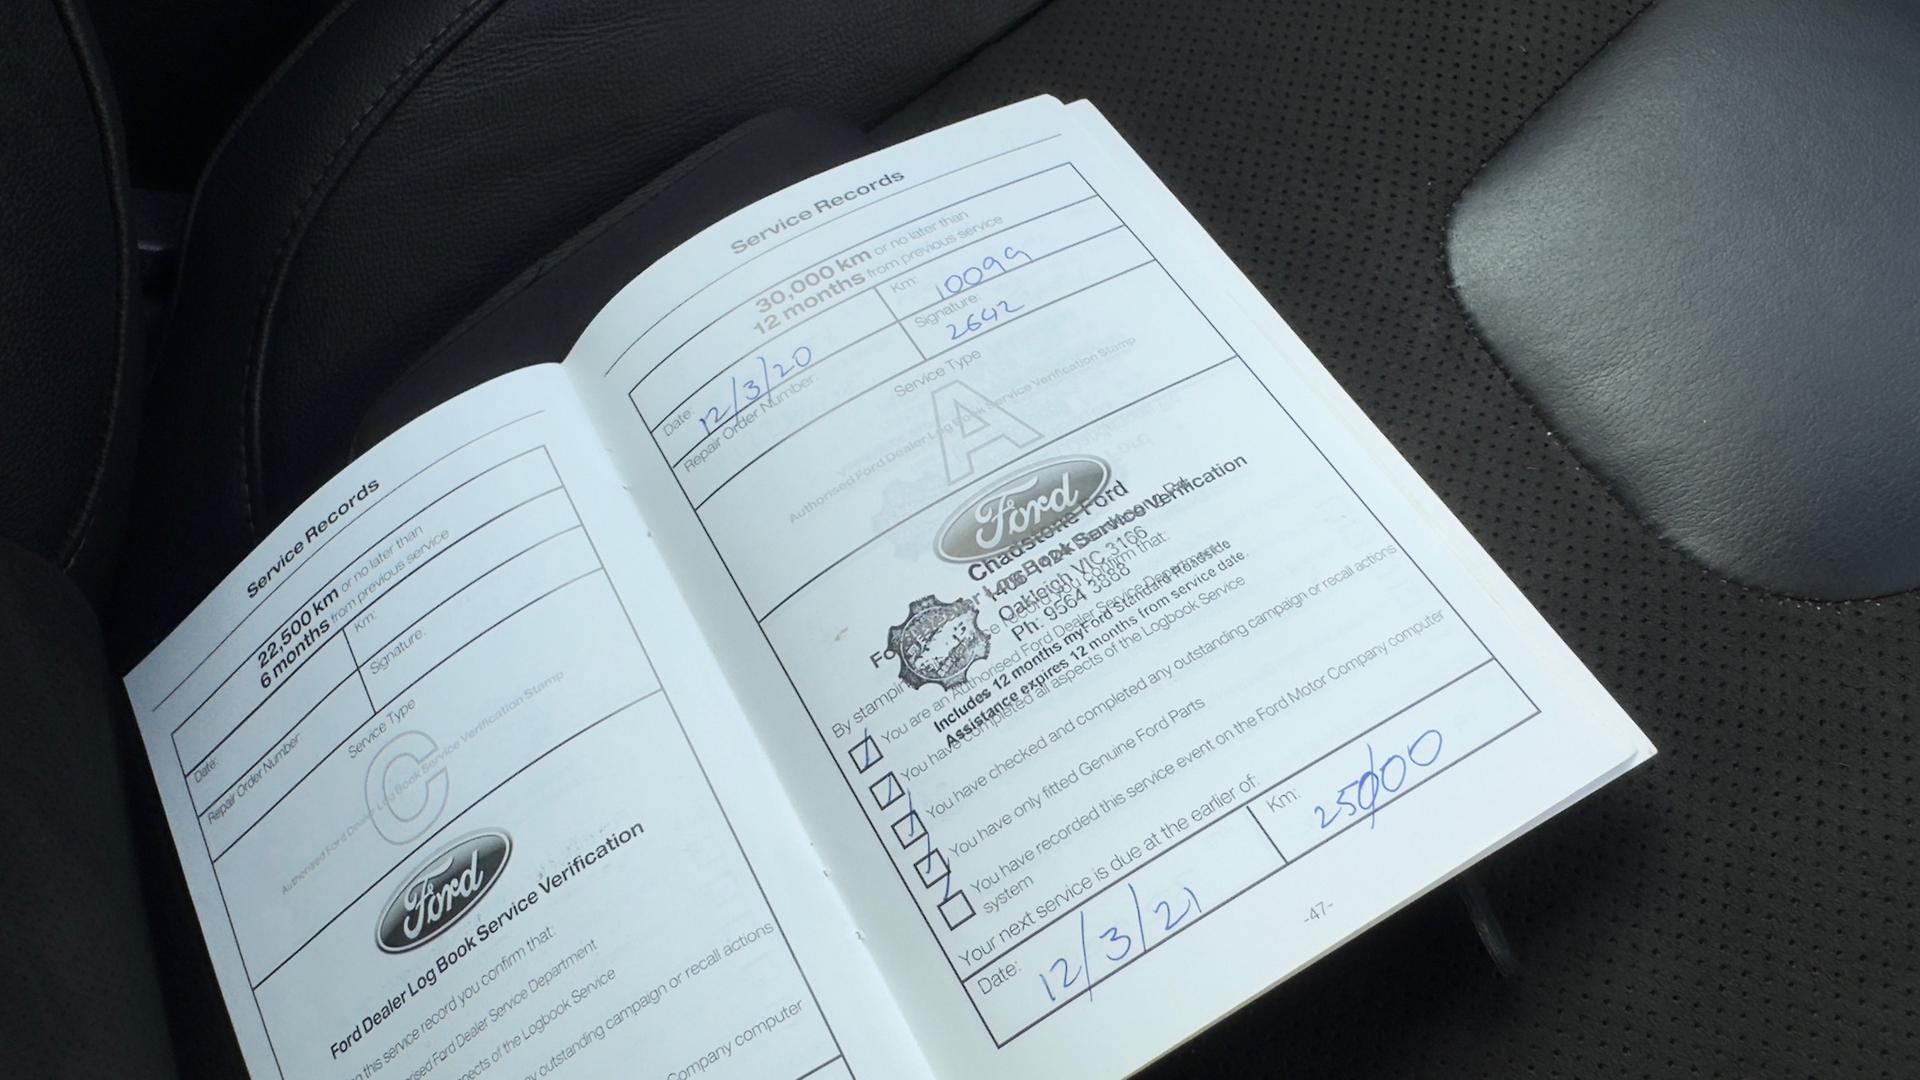 Service Records
22,500 km or no later than
6 months from previous service
Date:
Km:
Repair Order Number:
Signature:
Service Type
C
Authorised Ford Dealer Log Book Service Verification Stamp
Ford
Ford Dealer Log Book Service Verification
this service record you confirm that:
Ford Dealer Service Department
of the Logbook Service
outstanding campaign or recall actions
Company computer
Service Records
30,000 km or no later than
12 months from previous service
Date: 12/3/20
Km: 10099
Repair Order Number:
Signature: 2642
Service Type
A
Authorised Ford Dealer Log Book Service Verification Stamp
Ford
Chadstone Ford
Book Service Verification
Oakleigh VIC 3166
Ph: 9564 3888
By stamping
You are an Authorised Ford Dealer Service Department
Includes 12 months myFord Standard Roadside
Assistance expires 12 months from service date.
You have completed all aspects of the Logbook Service
You have checked and completed any outstanding campaign or recall actions
You have only fitted Genuine Ford Parts
You have recorded this service event on the Ford Motor Company computer
system
Your next service is due at the earlier of:
Date: 12/3/21
Km: 25000
-47-